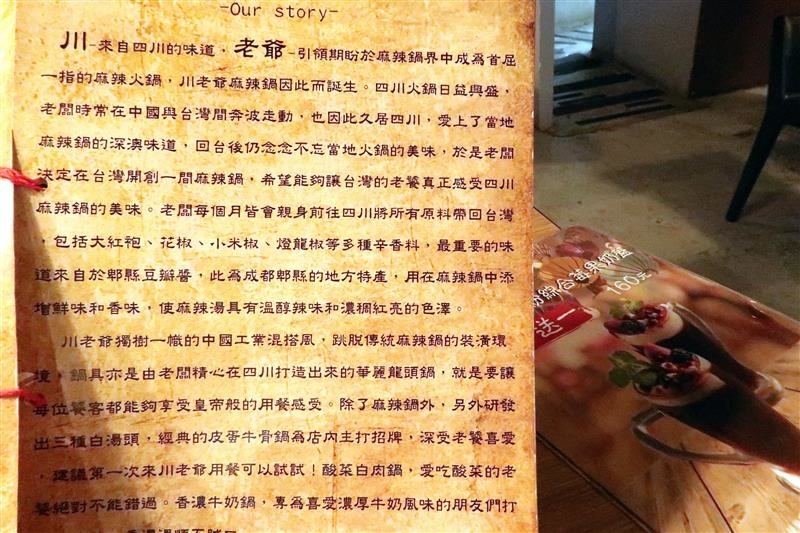 -Our story-
川-來自四川的味道，老爺-引領期盼於麻辣鍋界中成為首屈
一指的麻辣火鍋，川老爺麻辣鍋因此而誕生。四川火鍋日益興盛，
老闆時常在中國與台灣間奔波走動，也因此久居四川，愛上了當地
麻辣鍋的深澳味道，回台後仍念念不忘當地火鍋的美味，於是老闆
決定在台灣開創一間麻辣鍋，希望能夠讓台灣的老饕真正感受四川
麻辣鍋的美味。老闆每個月皆會親身前往四川將所有原料帶回台灣
，包括大紅袍、花椒、小米椒、燈龍椒等多種辛香料，最重要的味
道來自於郫縣豆瓣醬，此為成都郫縣的地方特產，用在麻辣鍋中添
增鮮味和香味，使麻辣湯具有溫醇辣味和濃稠紅亮的色澤。
川老爺獨樹一幟的中國工業混搭風，跳脫傳統麻辣鍋的裝潢環
境，鍋具亦是由老闆精心在四川打造出來的華麗龍頭鍋，就是要讓
每位饕客都能夠享受皇帝般的用餐感受。除了麻辣鍋外，另外研發
出三種白湯頭，經典的皮蛋牛骨鍋為店內主打招牌，深受老饕喜愛
，建議第一次來川老爺用餐可以試試！酸菜白肉鍋，愛吃酸菜的老
饕絕對不能錯過。香濃牛奶鍋，專為喜愛濃厚牛奶風味的朋友們打
綜合莓果奶
160元
送一